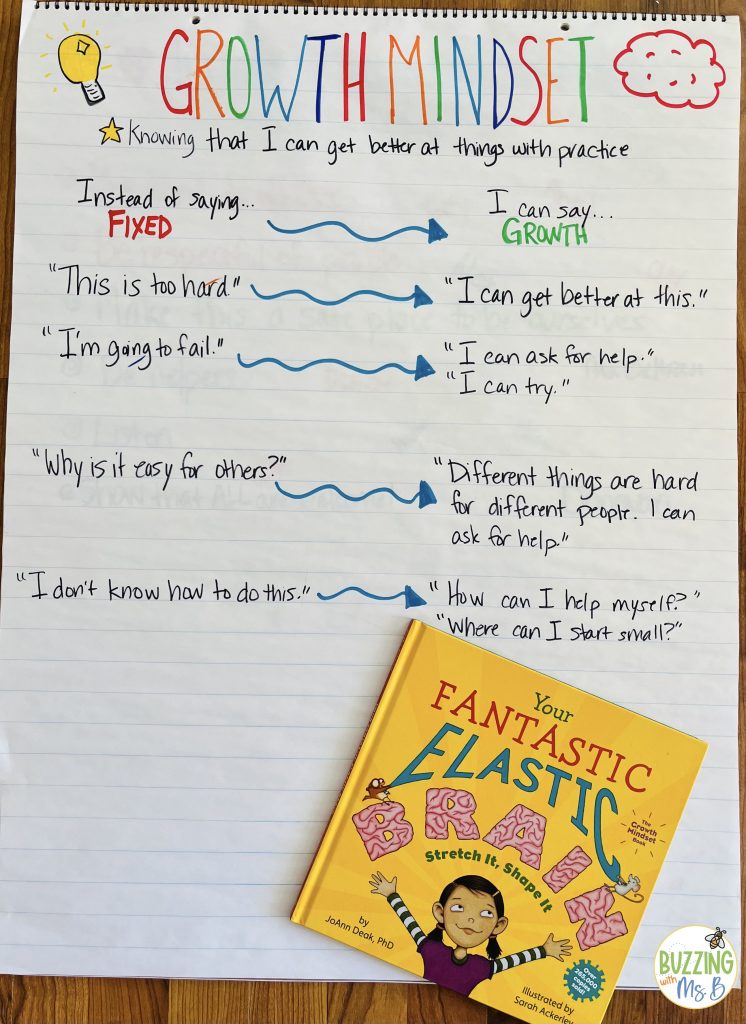 GROWTH MINDSET
Knowing that I can get better at things with practice
Instead of saying...
FIXED
I can say...
GROWTH
"This is too hard."
"I can get better at this."
"I'm going to fail."
"I can ask for help."
"I can try."
"Why is it easy for others?"
"Different things are hard
for different people. I can
ask for help."
"I don't know how to do this."
"How can I help myself?"
"Where can I start small?"
Your
FANTASTIC
ELASTIC
BRAIN
Stretch It, Shape It
The
Growth
Mindset
Book
by
JoAnn Deak, PhD
Over
285,000
copies
sold!
Illustrated by
Sarah Ackerley
BUZZING
with
Ms. B